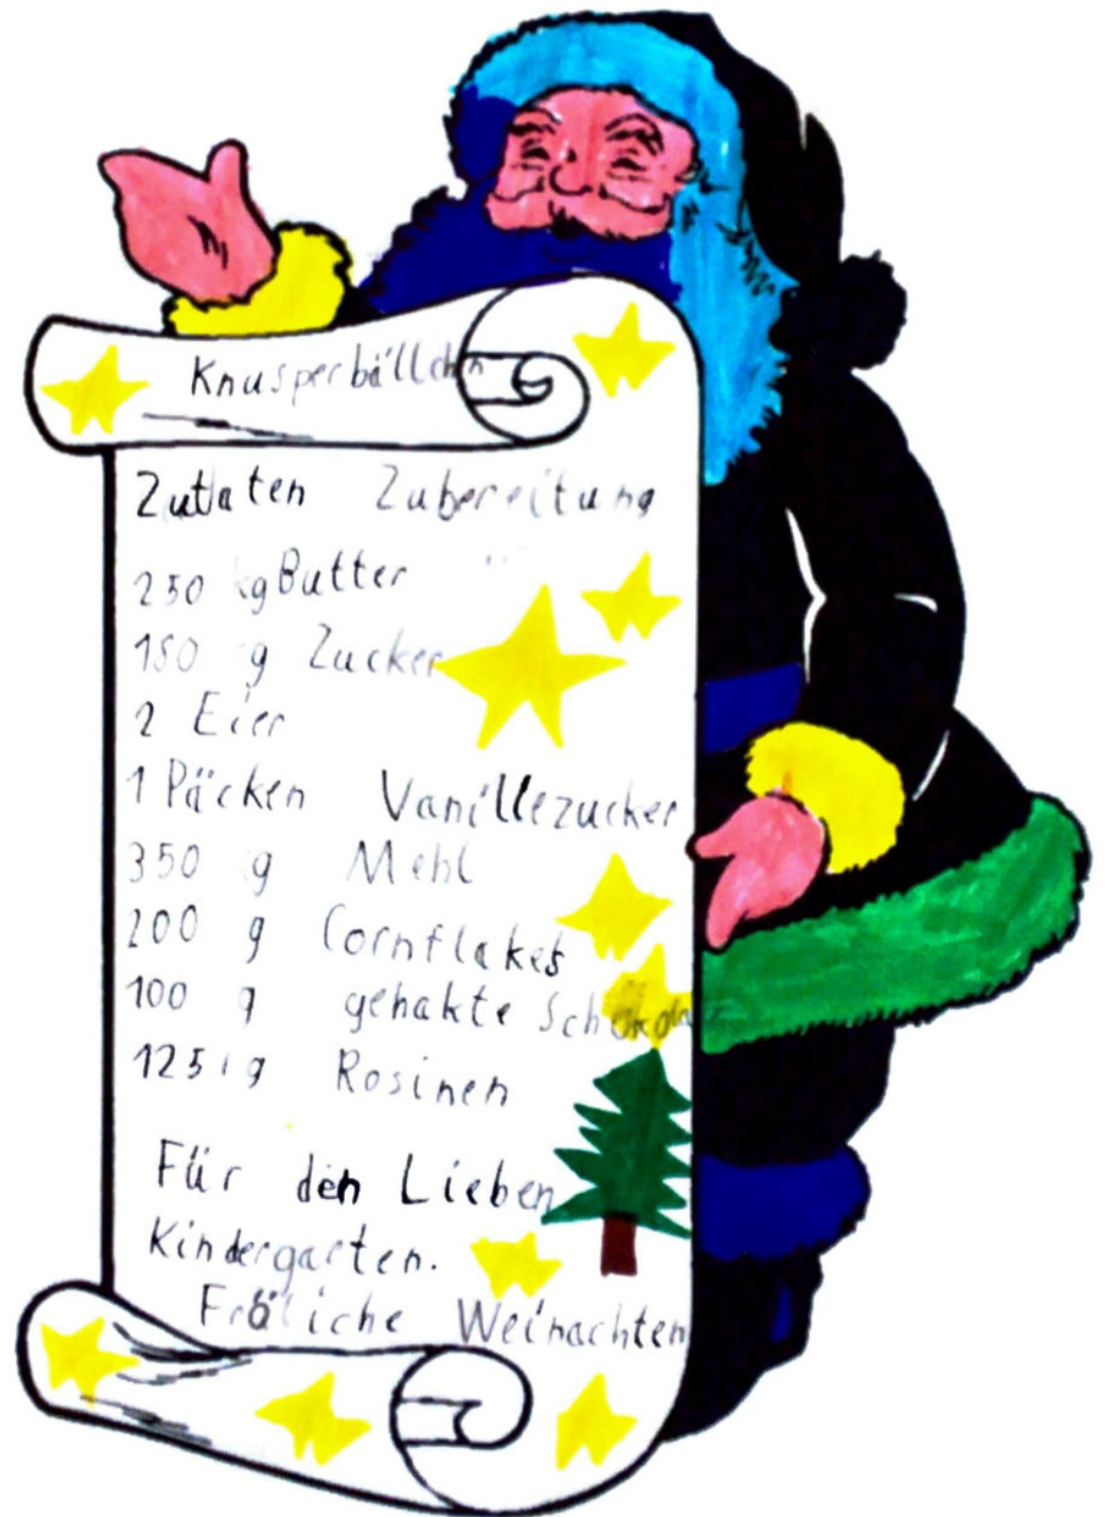 Knusperbällchen
Zutaten Zubereitung
250 kg Butter
150 g Zucker
2 Eier
1 Päcken Vanillezucker
350 g Mehl
200 g Cornflakes
100 g gehakte Schokolade
125 g Rosinen
Für den Lieben
Kindergarten.
Fröliche Weinachten